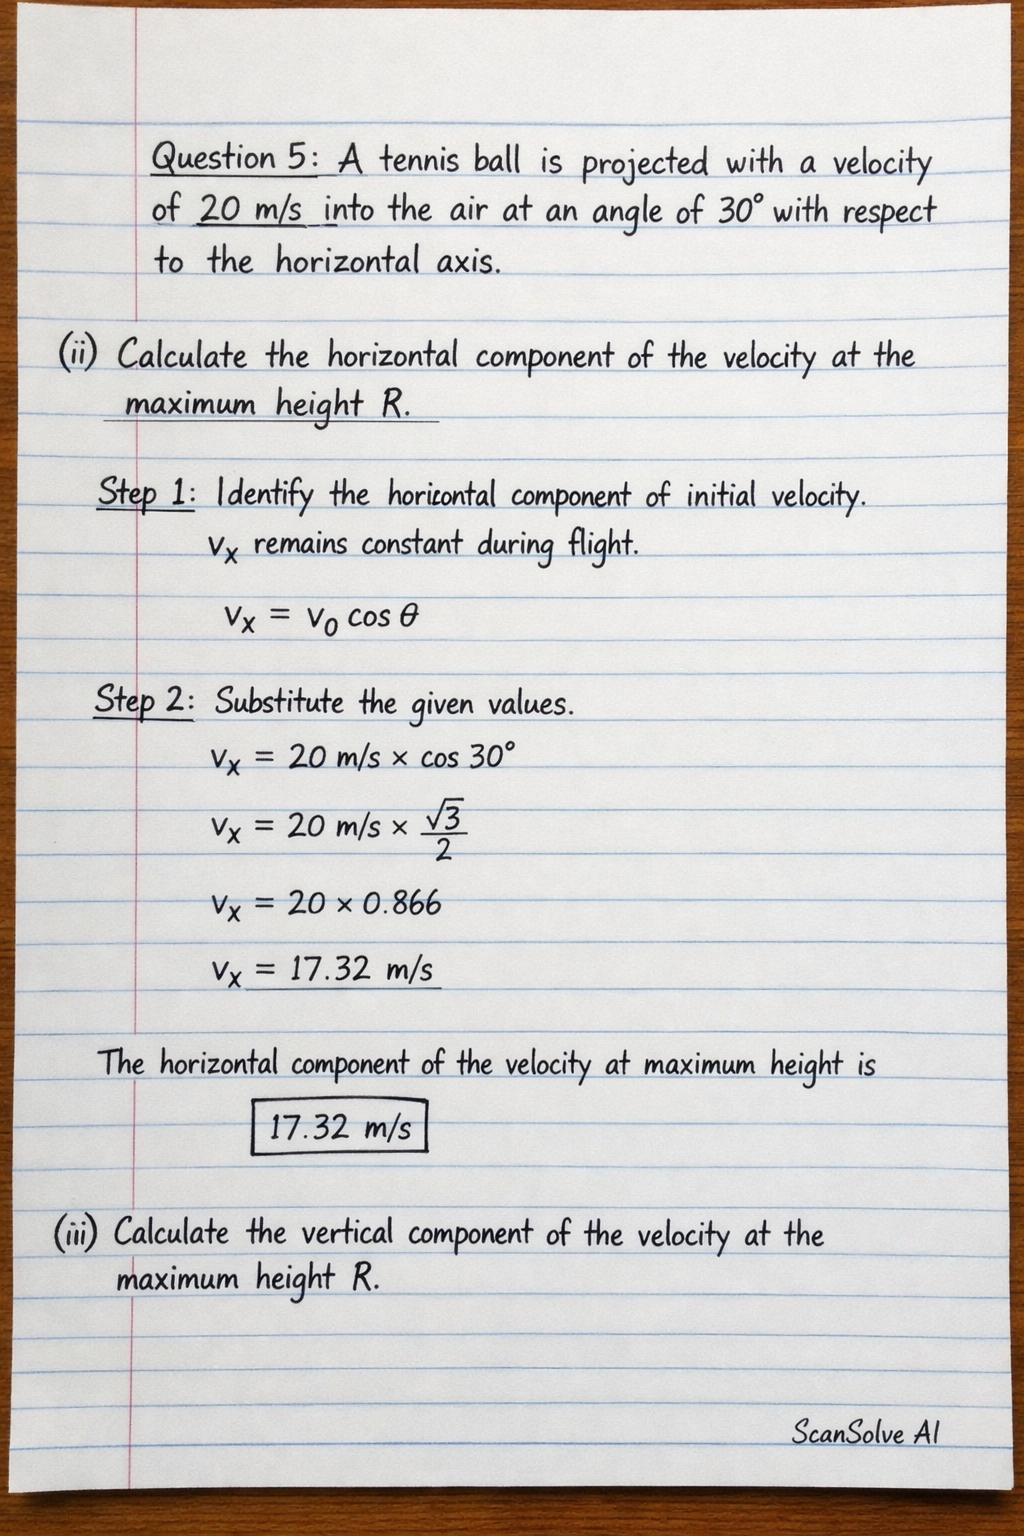 Question 5: A tennis ball is projected with a velocity
of 20 m/s into the air at an angle of 30° with respect
to the horizontal axis.
(ii) Calculate the horizontal component of the velocity at the
maximum height R.
Step 1: Identify the horicontal component of initial velocity.
vₓ remains constant during flight.
vₓ = v₀ cos θ
Step 2: Substitute the given values.
vₓ = 20 m/s × cos 30°
vₓ = 20 m/s × √3/2
vₓ = 20 × 0.866
vₓ = 17.32 m/s
The horizontal component of the velocity at maximum height is
17.32 m/s
(iii) Calculate the vertical component of the velocity at the
maximum height R.
ScanSolve AI